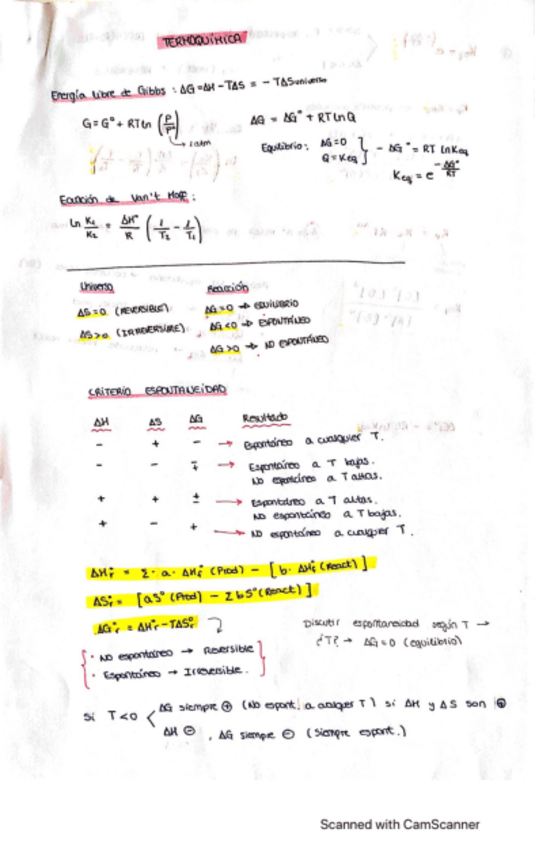 TERMOQUÍMICA
Energía Libre de Gibbs : ΔG=ΔH-TΔS = - TΔSuniverso
G=G°+RTln (P/P°) ΔG = ΔG°+RTLnQ
1atm
Equilibrio: ΔG=0 Q=Keq } - ΔG°= RT lnKeq
Keq = e^(-ΔG°/RT)
Ecuación de Van't Hoff :
Ln K1/K2 = ΔH°/R (1/T2 - 1/T1)
Universo Reacción
ΔS=0 (REVERSIBLE) ΔG=0 → EQUILIBRIO
ΔS>0 (IRREVERSIBLE) ΔG<0 → ESPONTÁNEO
ΔG>0 → NO ESPONTÁNEO
CRITERIO ESPONTANEIDAD
ΔH ΔS ΔG Resultado
- + - → Espontáneo a cualquier T.
- - ∓ → Espontáneo a T bajas.
No espontáneo a T altas.
+ + ± → Espontáneo a T altas.
No espontáneo a T bajas.
+ - + → No espontáneo a cualquier T.
ΔHr° = Σ· a · ΔHf° (Prod) - [b· ΔHf° (React)]
ΔSr° = [aS° (Prod) - ΣbS°(React)]
ΔGr° = ΔHr°-TΔSr°
Discutir espontaneidad según T →
¿T? → ΔG=0 (equilibrio)
· No espontáneo → Reversible
· Espontáneo → Irreversible.
Si T<0 < ΔG siempre ⊕ (No espont. a cualquier T) si ΔH y ΔS son ⊕
ΔH ⊖, ΔG siempre ⊖ (Siempre espont.)
Scanned with CamScanner